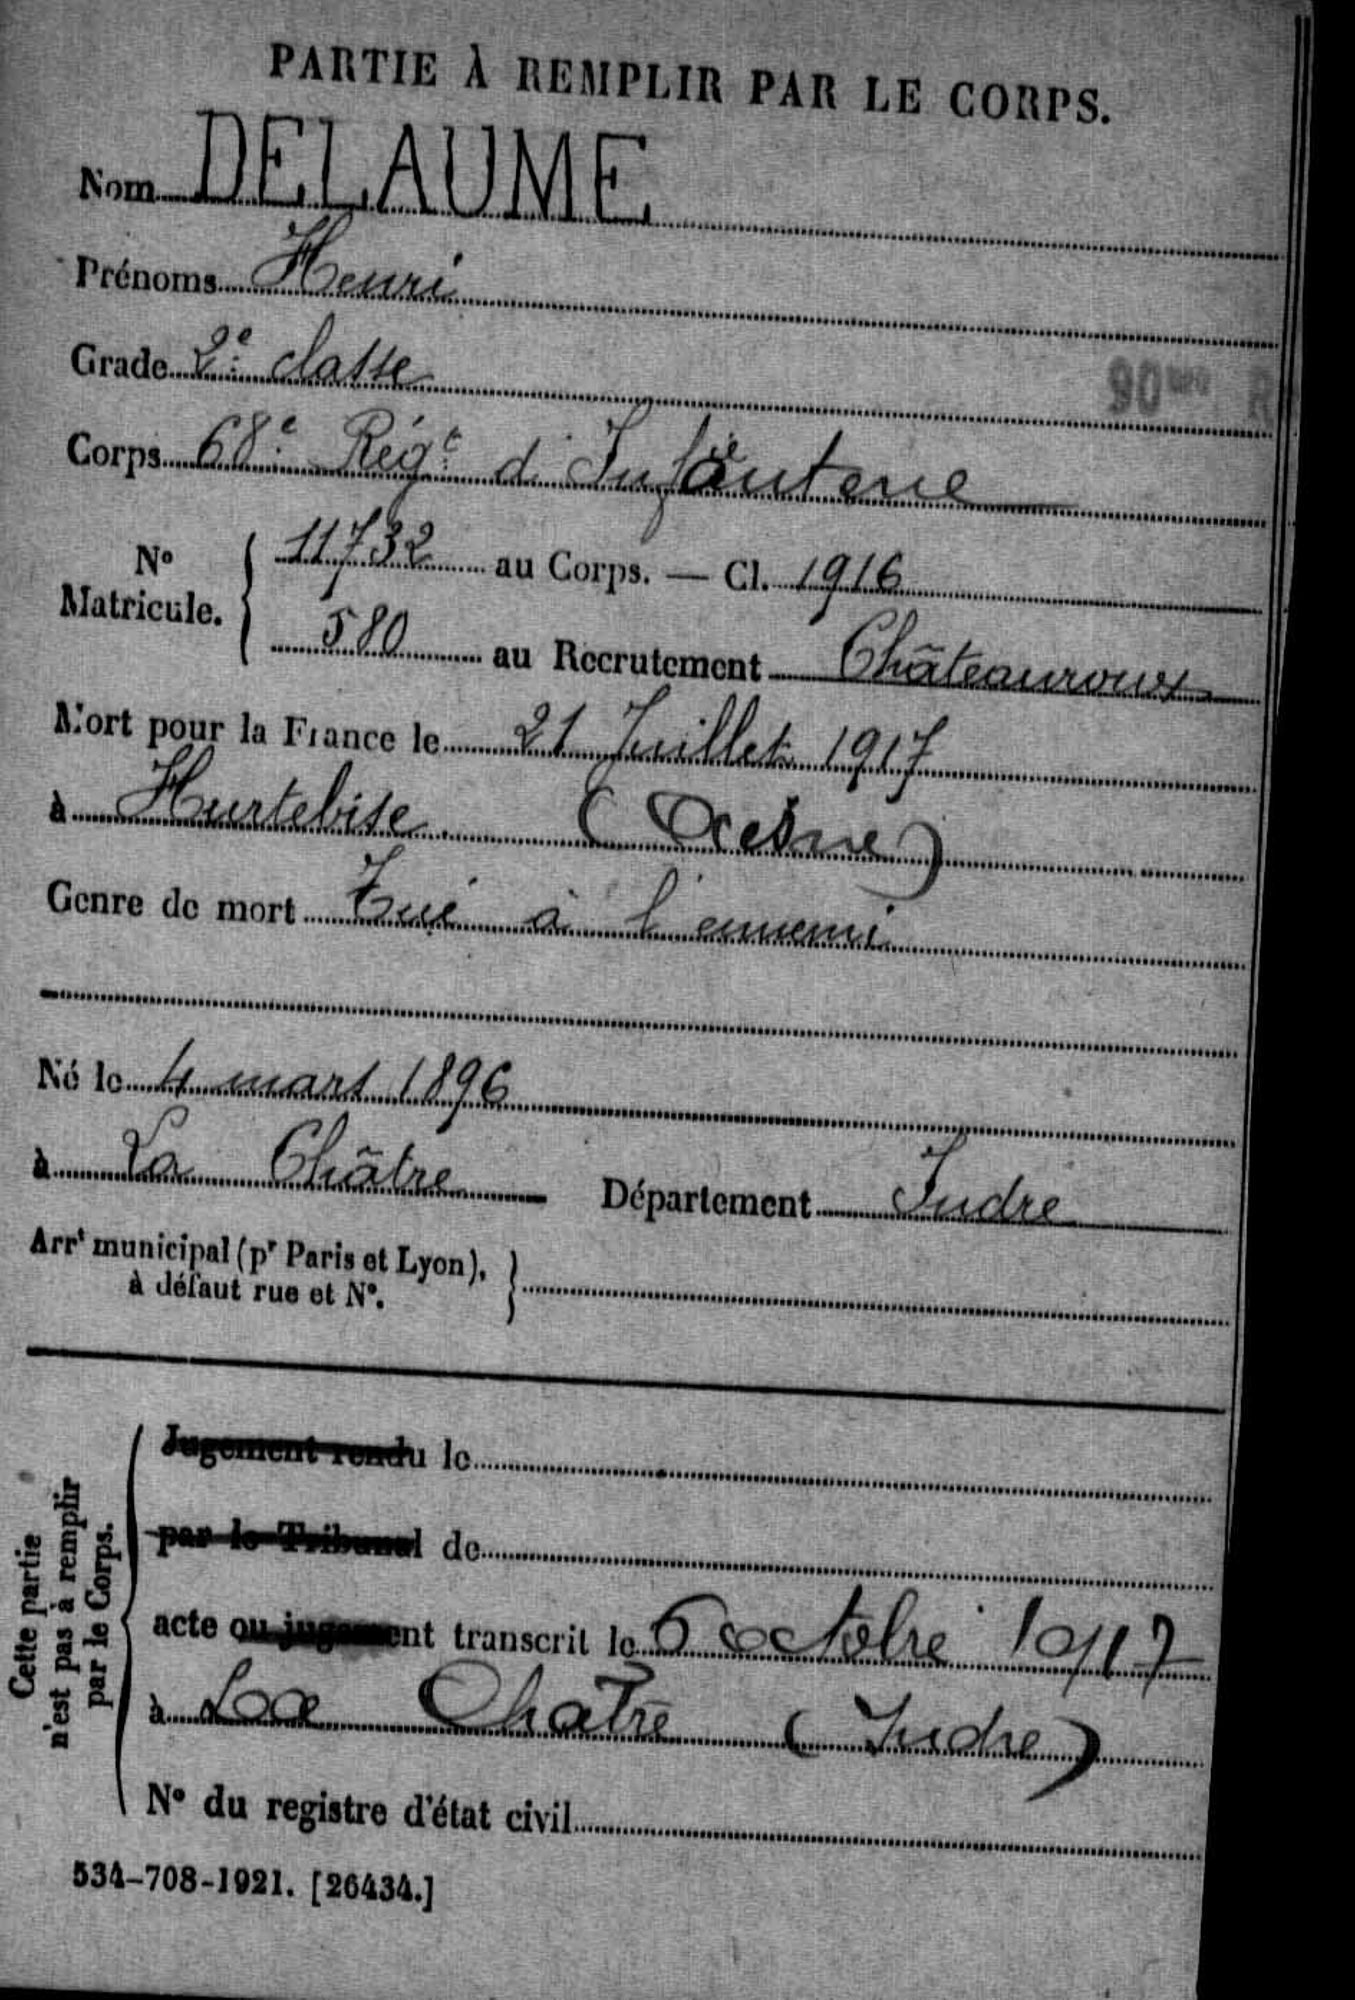 PARTIE À REMPLIR PAR LE CORPS.
Nom DELAUME
Prénoms Henri
Grade 2e classe
90ème R
Corps 68e Régt d'Infanterie
No Matricule. { 11732 au Corps. — Cl. 1916
580 au Recrutement Châteauroux
Mort pour la France le 21 Juillet 1917
à Hurtebise (Aisne)
Genre de mort Tué à l'ennemi
Né le 4 mars 1896
à La Châtre Département Indre
Arrt municipal (pr Paris et Lyon),
à défaut rue et No. }
Cette partie
n'est pas à remplir
par le Corps.
Jugement rendu le
par le Tribunal de
acte ou jugement transcrit le 6 octobre 1917
à La Chatre (Indre)
No du registre d'état civil
534-708-1921. [26434.]